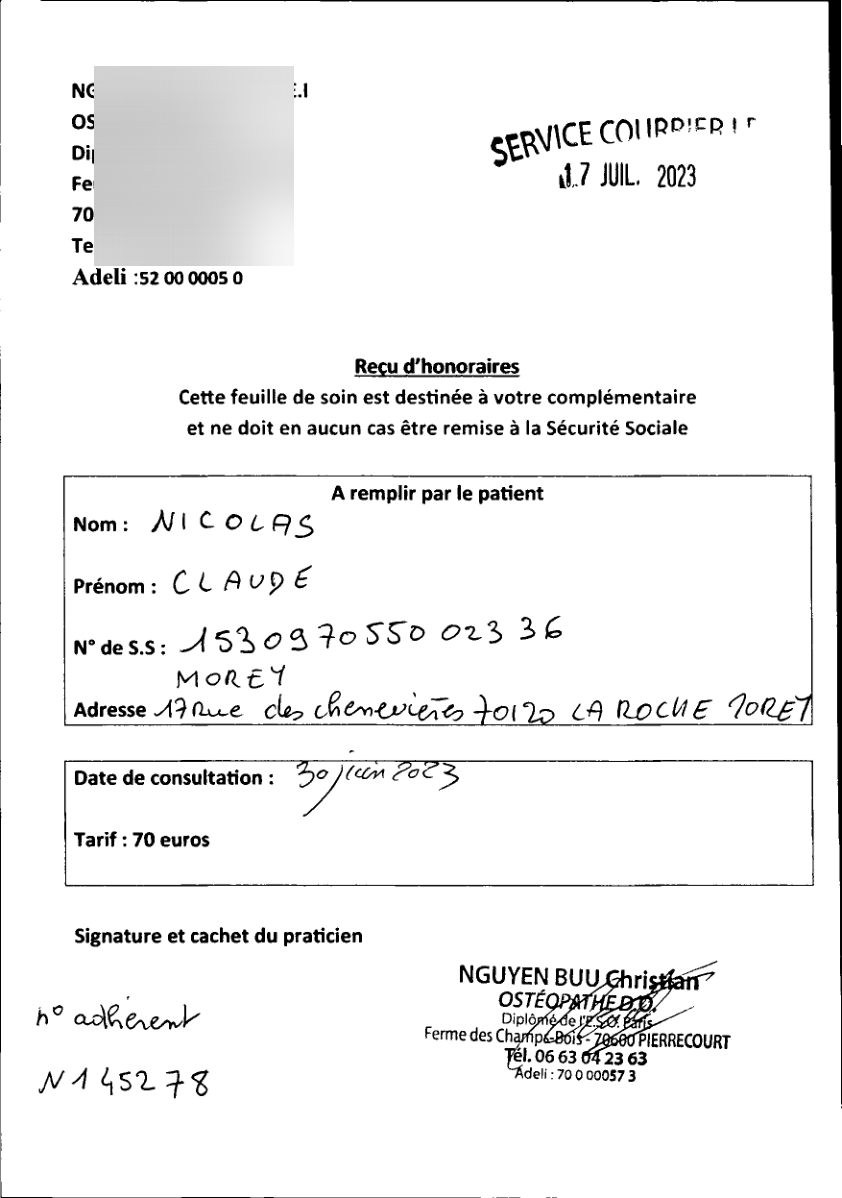 SERVICE COURRIER LE
17 JUIL. 2023
Adeli :52 00 0005 0
Reçu d'honoraires
Cette feuille de soin est destinée à votre complémentaire
et ne doit en aucun cas être remise à la Sécurité Sociale
A remplir par le patient
Nom : NICOLAS
Prénom : CLAUDE
N° de S.S : 1530970550 023 36
MOREY
Adresse 17 Rue des chenevières 70120 LA ROCHE MOREY
Date de consultation : 30 juin 2023
Tarif : 70 euros
Signature et cachet du praticien
NGUYEN BUU Christian
OSTÉOPATHE D.O.
Diplômé de l'E.S.O. Paris
Ferme des Champs-Bois - 70600 PIERRECOURT
Tél. 06 63 04 23 63
Adeli : 70 0 00057 3
n° adhérent
N145278